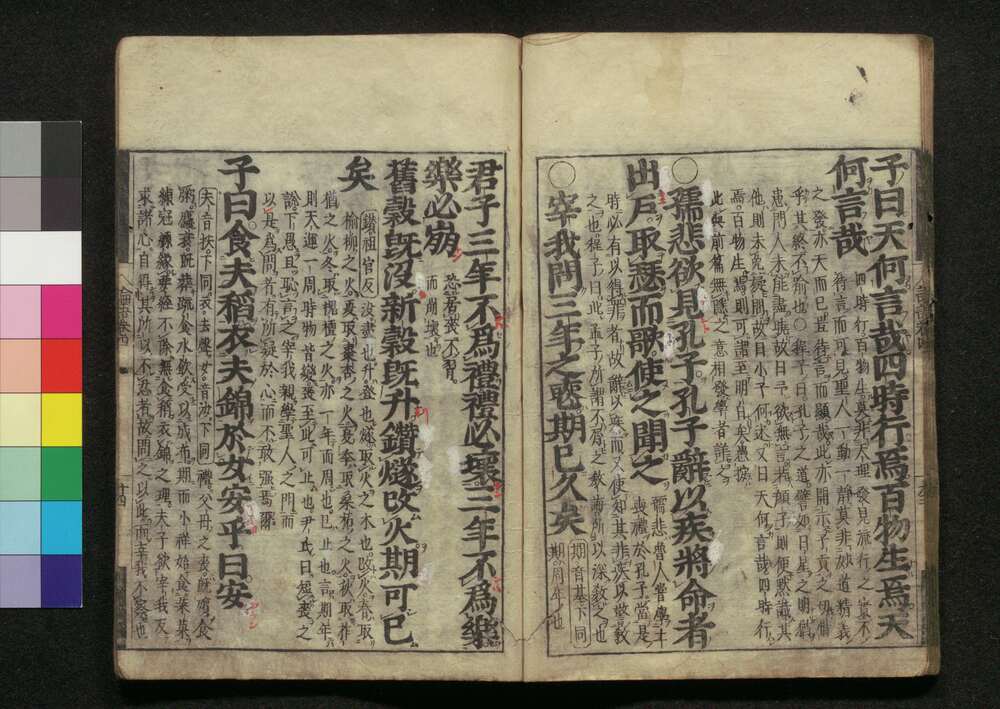 子曰天何言哉四時行焉百物生焉天
何言哉
四時行百物生莫非天理發見流行之實不
待言而可見聖人一動一靜莫非妙道精義
之發亦天而已豈待言而顯哉此亦開示子貢之切惜
乎其終不喩也○程子曰孔子之道譬如日星之明猶
患門人未能盡曉故曰予欲無言若顏子則便默識其
他則未免疑問故曰小子何述又曰天何言哉四時行
焉百物生焉則可謂至明白矣愚按
此與前篇無隱之意相發學者詳之
○孺悲欲見孔子孔子辭以疾將命者
出戶取瑟而歌使之聞之
孺悲魯人嘗學士
喪禮於孔子當是
時必有以得罪者故辭以疾而又使知其非疾以警敎
之也程子曰此孟子所謂不屑之敎誨所以深敎之也
○宰我問三年之喪期已久矣
期音基下同
期周年也
君子三年不爲禮禮必壞三年不爲樂
樂必崩
恐居喪不習
而崩壞也
舊穀旣沒新穀旣升鑽燧改火期可已
矣
鑽祖官反
沒盡也升登也燧取火之木也改火春取
榆柳之火夏取棗杏之火夏季取桑柘之火秋取柞
楢之火冬取槐檀之火亦一年而周也已止也言期年
則天運一周時物皆變喪至此可止也尹氏曰短喪之
說下愚且恥言之宰我親學聖人之門而
以是爲問者有所疑於心而不敢强焉爾
子曰食夫稻衣夫錦於女安乎曰安
夫音扶下同衣去聲女音汝下同
禮父母之喪旣殯食
粥麤衰旣葬疏食水飮受以成布期而小祥始食菜果
練冠縓緣要絰不除無食稻衣錦之理夫子欲宰我反
求諸心自得其所以不忍者故問之以此而宰我不察也